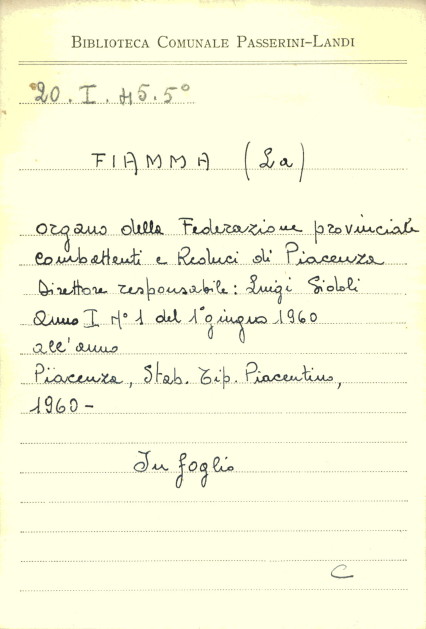 BIBLIOTECA COMUNALE PASSERINI-LANDI
20. I. H5. 5°
FIAMMA (La)
organo della Federazione provinciale
Combattenti e Reduci di Piacenza
Direttore responsabile: Luigi Sidoli
Anno I N° 1 del 1° giugno 1960
all'anno
Piacenza, Stab. Tip. Piacentino,
1960-
In foglio
C